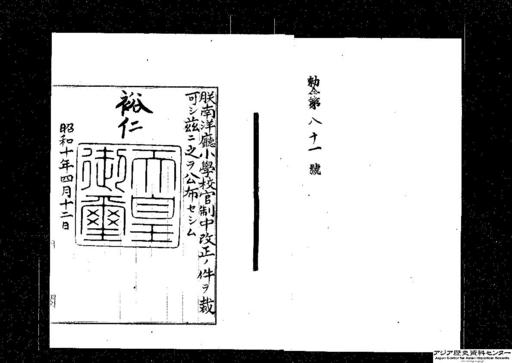 勅令第八十一號
朕南洋廳小學校官制中改正ノ件ヲ裁
可シ茲ニ之ヲ公布セシム
裕仁
天皇
御璽
昭和十年四月十二日
アジア歴史資料センター
Japan Center for Asian Historical Records